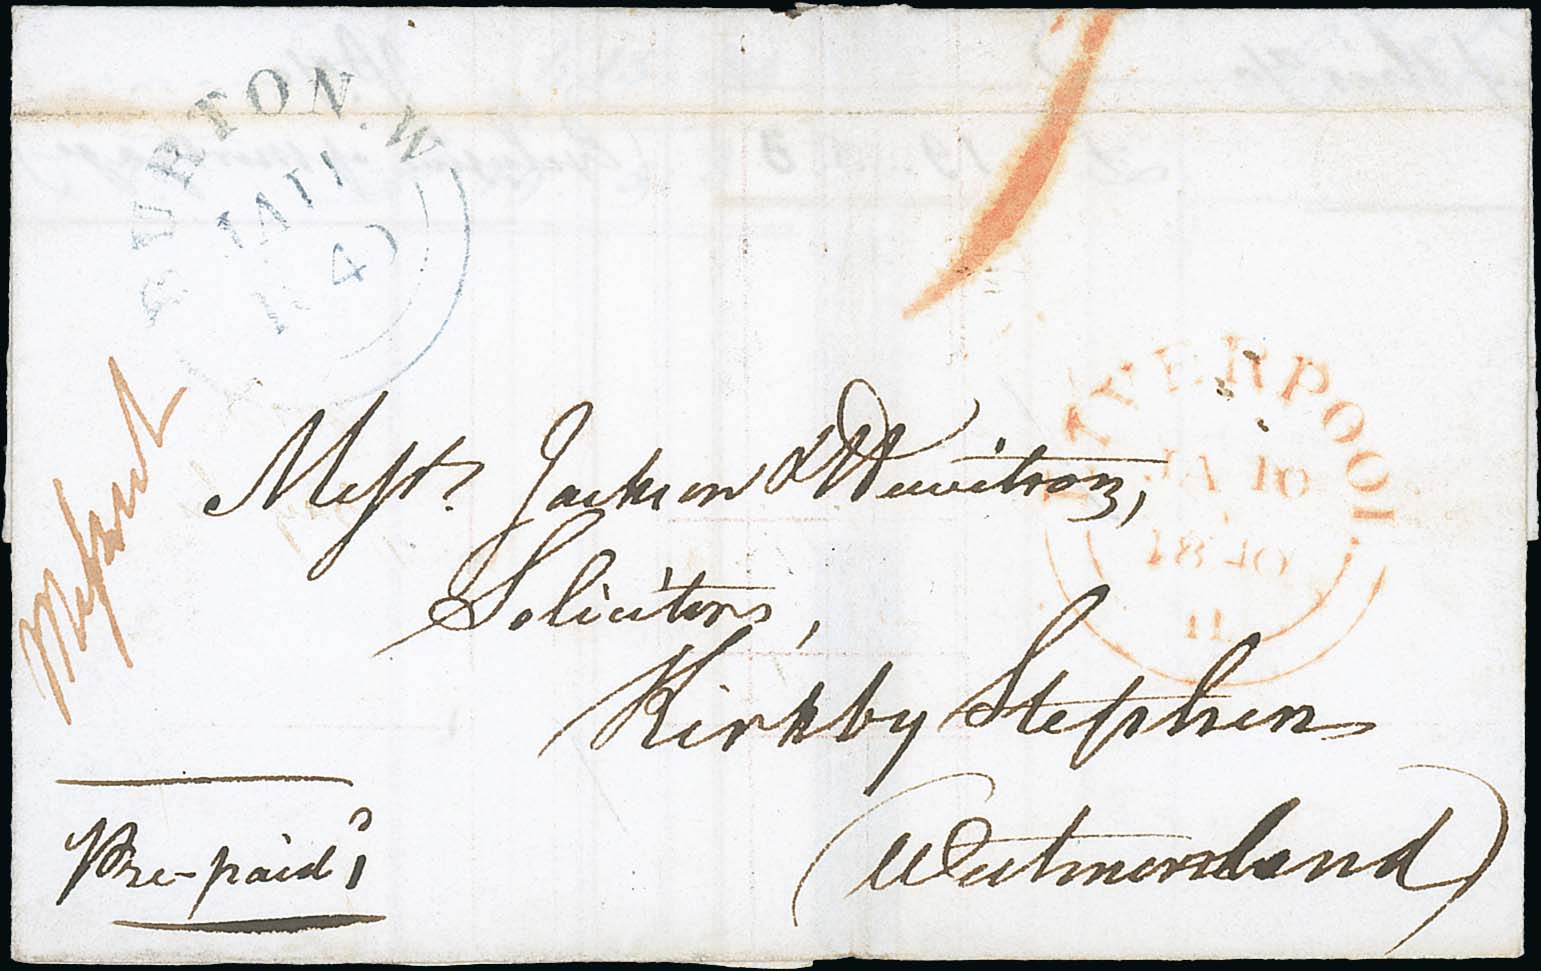 BURTON.W
JA 11
184
LIVERPOOL
JA 10
1840
Missent
Messrs. Jackson & Hewitson,
Solicitors,
Kirkby Stephen
(Westmoreland)
Pre-paid